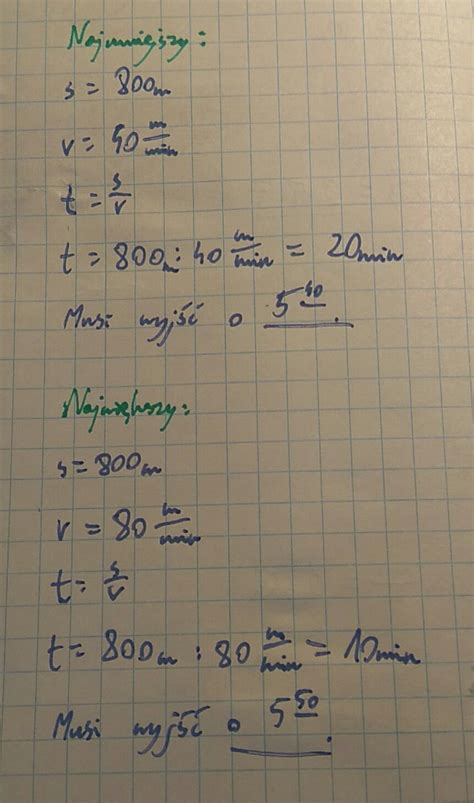 Najmniejszy:
s = 800m
v = 40 m/min
t = s/v
t = 800m : 40 m/min = 20min
Musi wyjść o 5⁴⁰.
Największy:
s = 800m
v = 80 m/min
t = s/v
t = 800m : 80 m/min = 10min
Musi wyjść o 5⁵⁰.